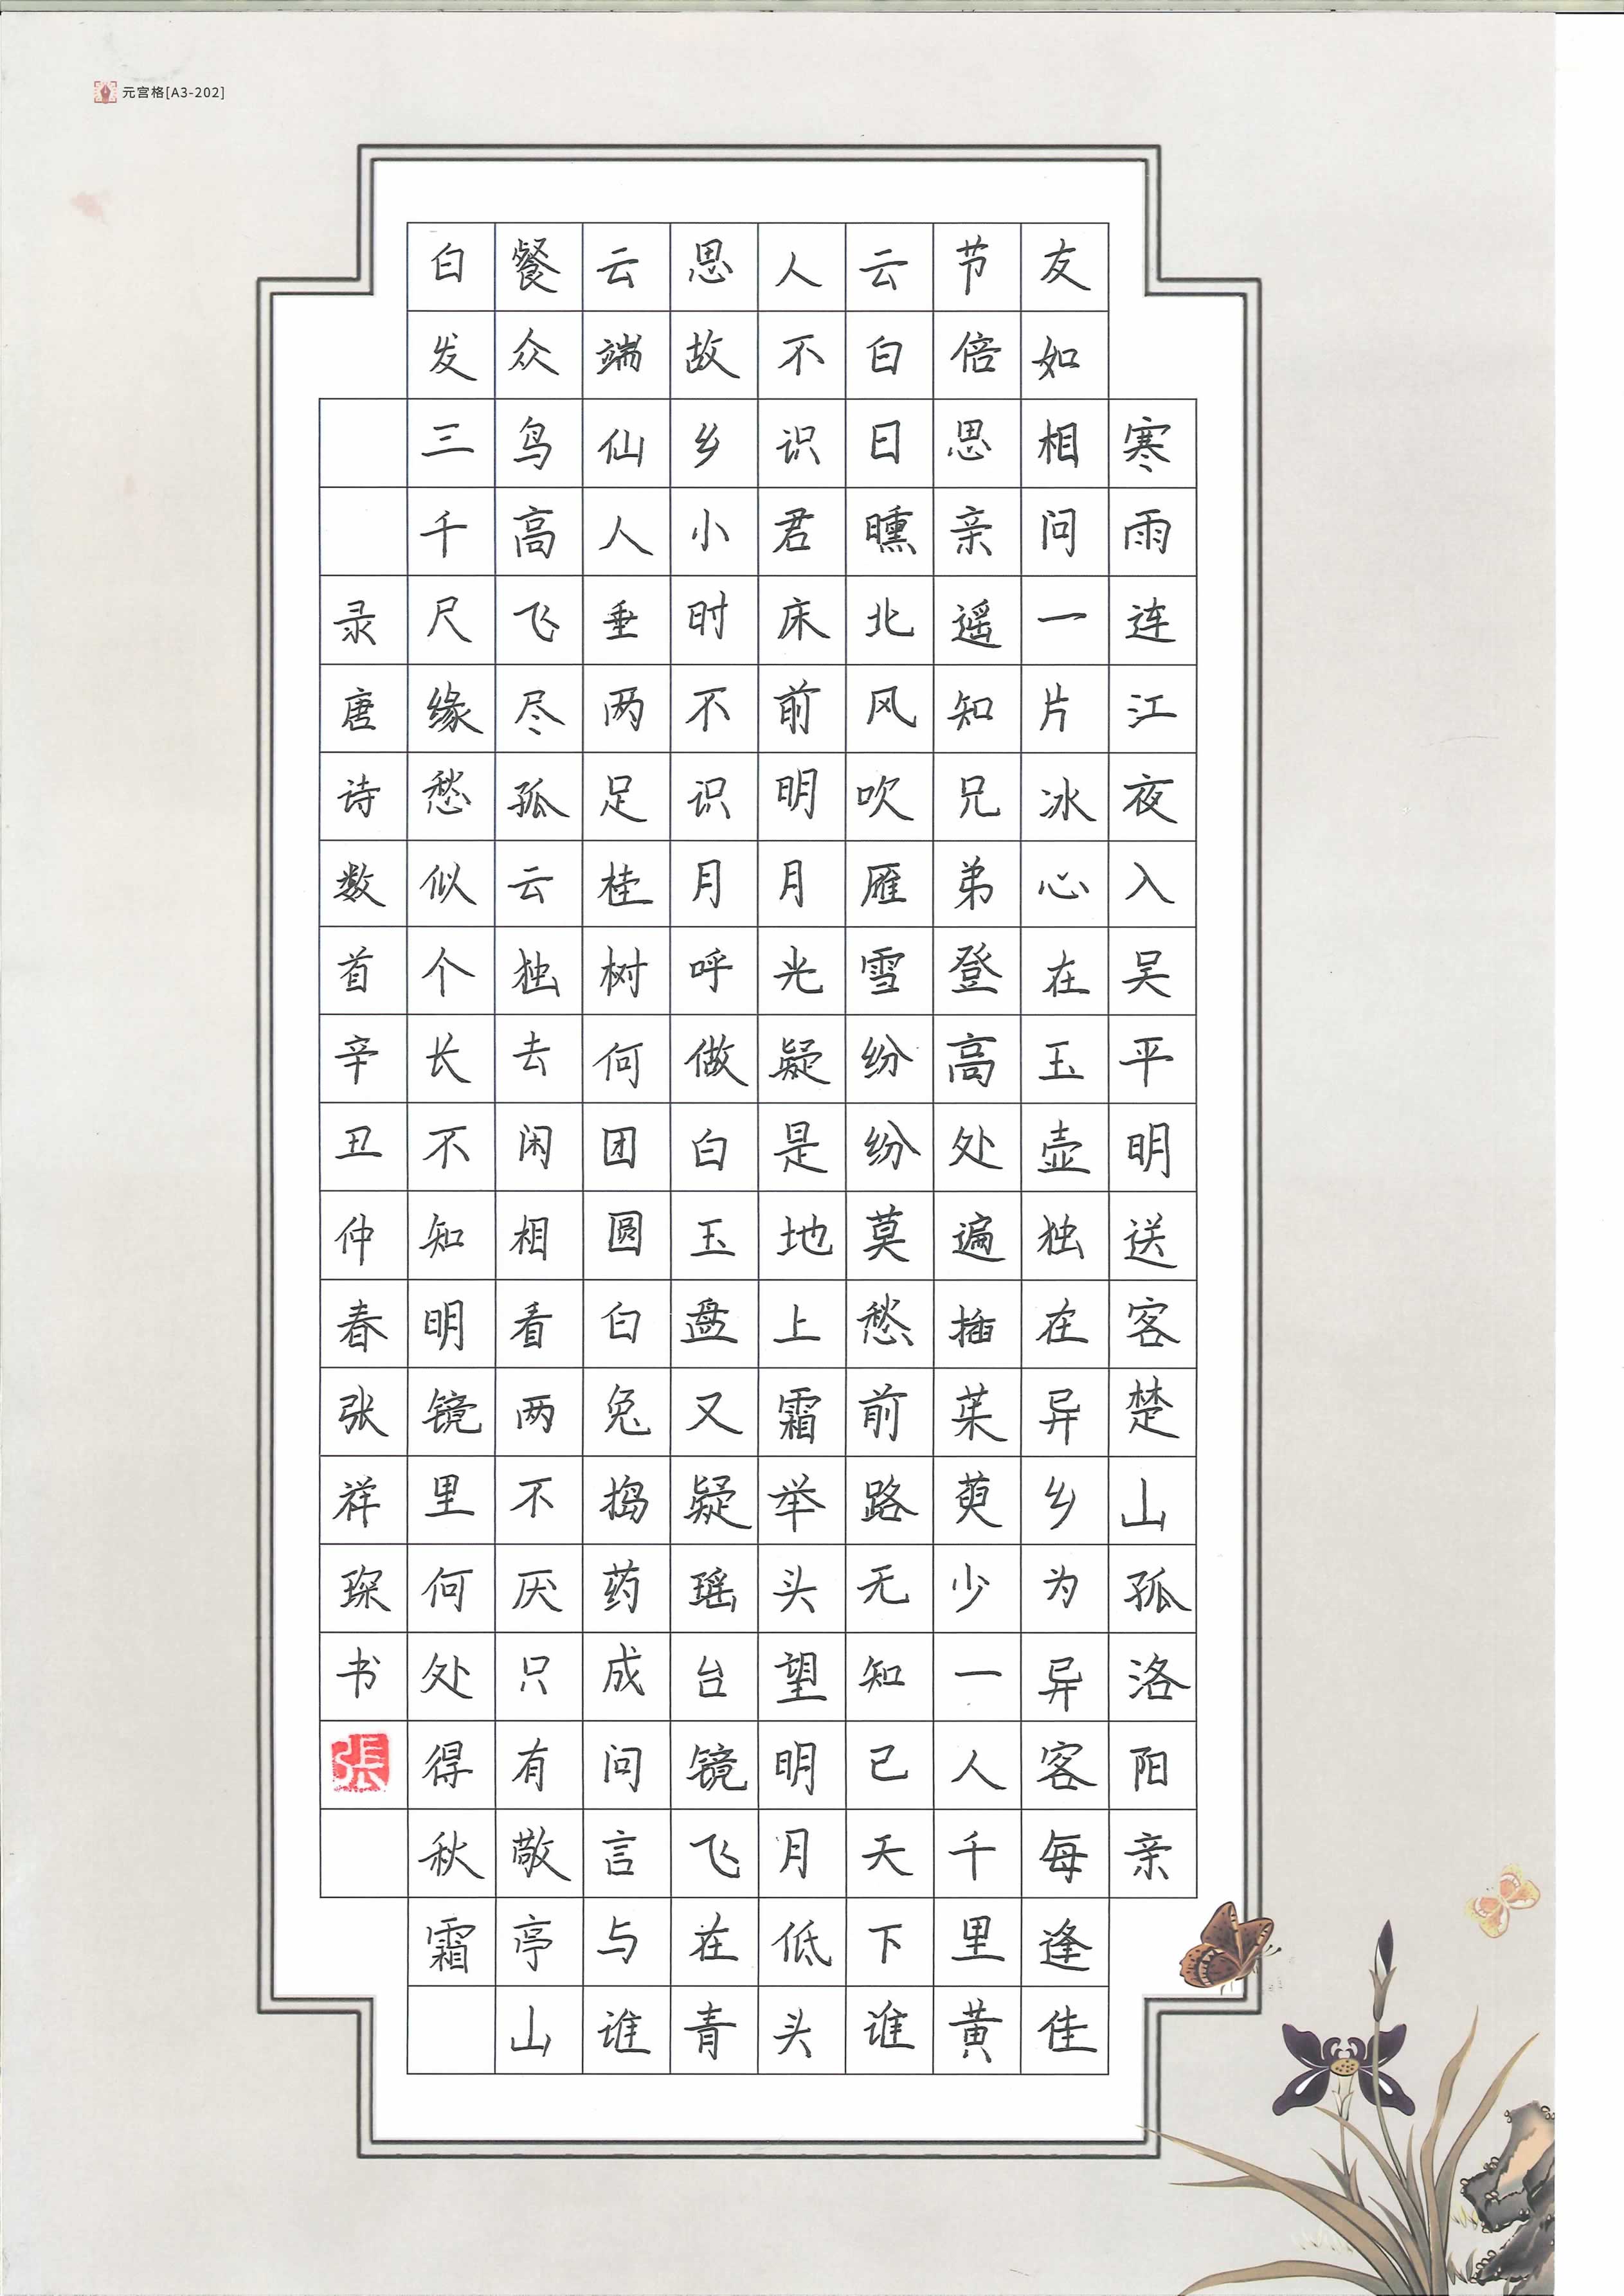 元宫格[A3-202]
寒雨连江夜入吴平明送客楚山孤洛阳亲
友如相问一片冰心在玉壶独在异乡为异客每逢佳
节倍思亲遥知兄弟登高处遍插茱萸少一人千里黄
云白日曛北风吹雁雪纷纷莫愁前路无知己天下谁
人不识君床前明月光疑是地上霜举头望明月低头
思故乡小时不识月呼做白玉盘又疑瑶台镜飞在青
云端仙人垂两足桂树何团圆白兔捣药成问言与谁
餐众鸟高飞尽孤云独去闲相看两不厌只有敬亭山
白发三千尺缘愁似个长不知明镜里何处得秋霜
录唐诗数首辛丑仲春张祥琛书
張